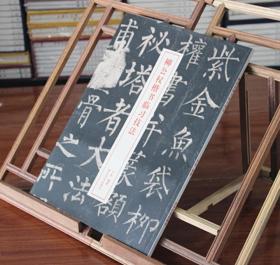 柳公权楷书临习技法
紫金魚袋柳
權書并篆額
秘塔者大法
甫骨之所